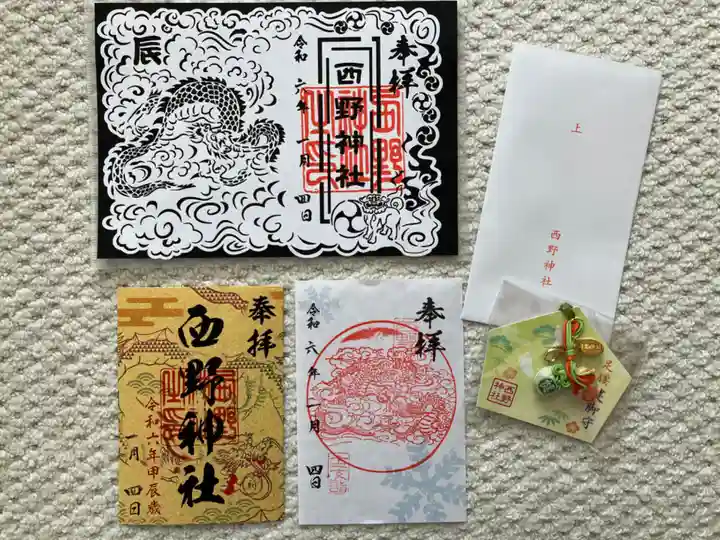 辰
奉拝
西野神社
令和六年
一月
四日
上
西野神社
奉拝
西野神社
令和六年甲辰歳
一月
四日
奉拝
令和六年
一月
四日
西野
神社